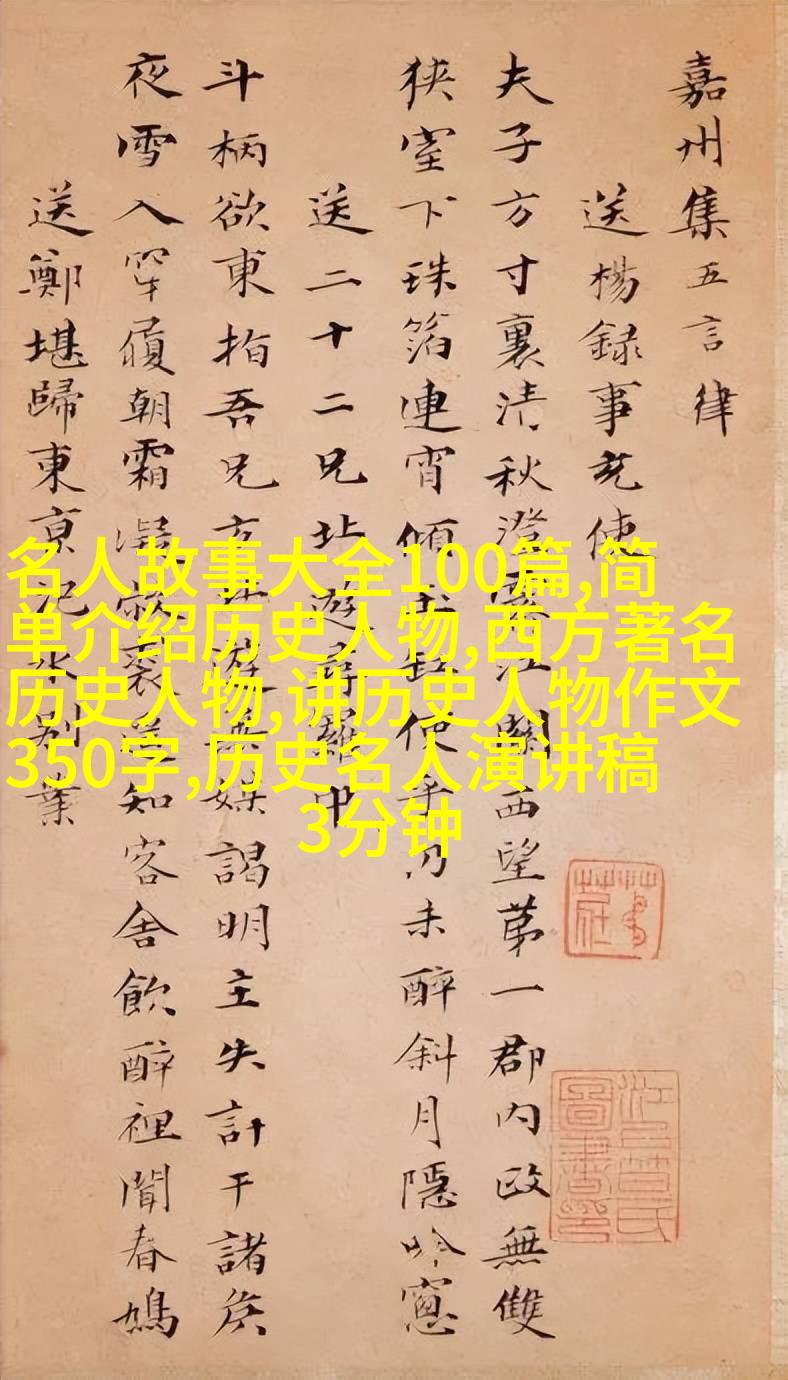 嘉州集五言律
送楊録事充使
夫子方寸裏清秋澄 江關西望第一郡内政無雙
狹室下珠箔連宵傾 使乎乃未醉斜月隱吟窻
送二十二兄北遊尋羅中
斗柄欲東指吾兄 媒謁明主失計干諸侯
夜雪入穿履朝霜 裘遥知客舍飲醉裡聞春鳩
送鄭堪歸東京氾水别業
名人故事大全100篇,简
单介绍历史人物,西方著名
历史人物,讲历史人物作文
350字,历史名人演讲稿
3分钟